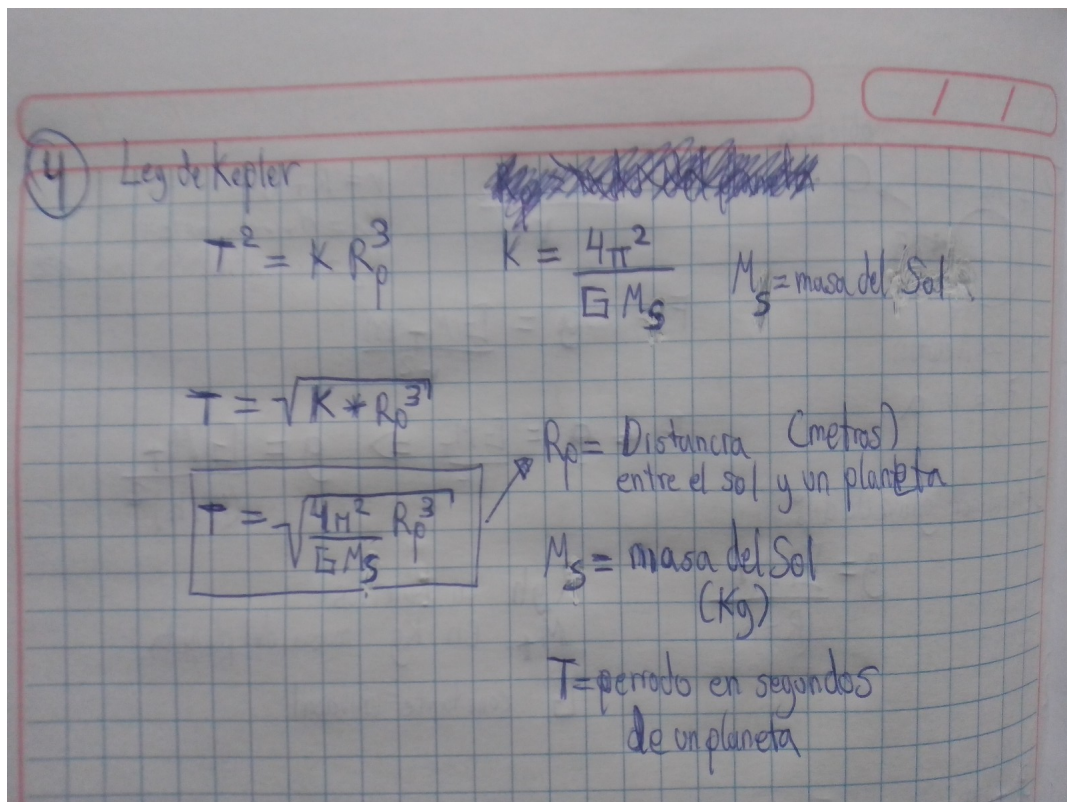 4 Ley de Kepler
T² = K Rp³ K = 4π² / G Ms Ms = masa del Sol
T = √K * Rp³
Rp = Distancia (metros)
entre el sol y un planeta
T = √4π² / G Ms Rp³
Ms = masa del Sol
(Kg)
T = periodo en segundos
de un planeta